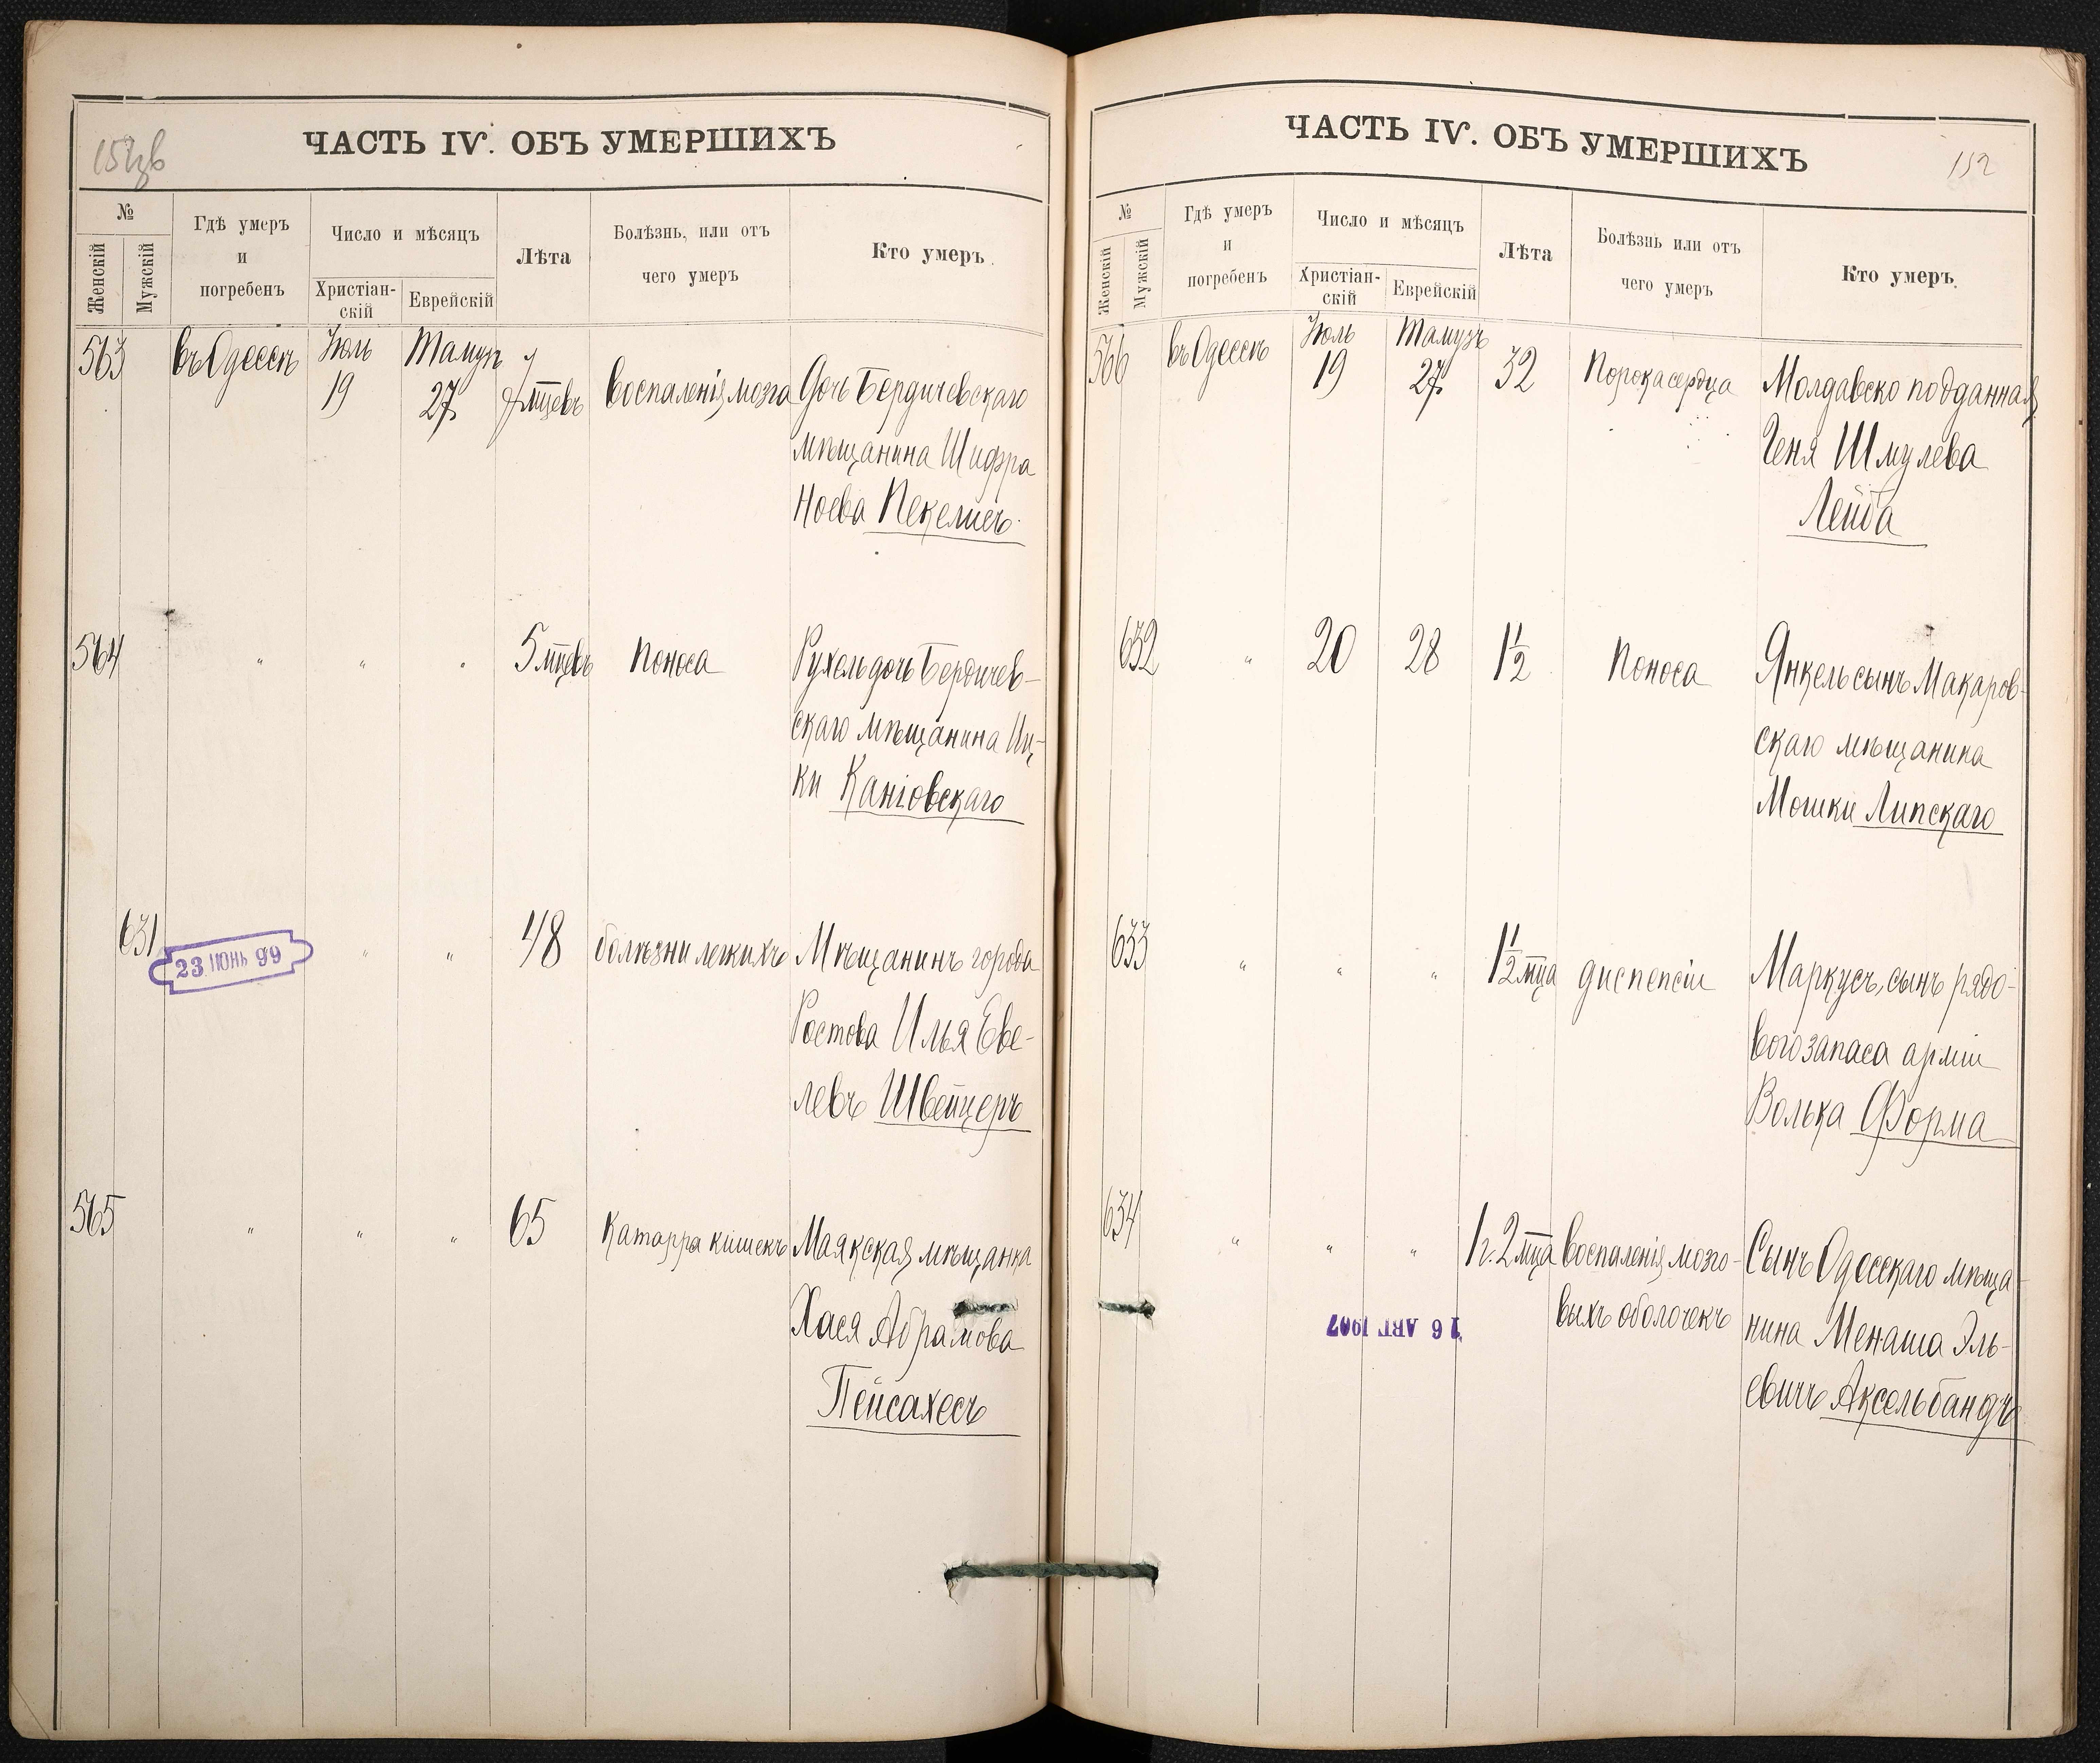 ЧАСТЬ IV. ОБЪ УМЕРШИХЪ
№
Женскій
Мужскій
Гдѣ умеръ
и
погребенъ
Число и мѣсяцъ
Христіан-
скій
Еврейскій
Лѣта
Болѣзнь, или отъ
чего умеръ
Кто умеръ.
563 въ Одессѣ Іюль 19 Тамузъ 27 мцевъ воспаленія мозга Дочь Бердичевскаго
мѣщанина Шифра
Ноева Пекелисъ
564 " " " 5 мцевъ поноса Рухель дочь Бердичев-
скаго мѣщанина Иц-
ки Каніовскаго
631 23 ІЮНЬ 99 " " 48 болѣзни легкихъ Мѣщанинъ города
Ростова Илья Еве-
левъ Швейцеръ
565 " " " 65 Катарра кишекъ Маякская мѣщанка
Хася Абрамова
Пейсахесъ
ЧАСТЬ IV. ОБЪ УМЕРШИХЪ
152
№
Женскій
Мужскій
Гдѣ умеръ
и
погребенъ
Число и мѣсяцъ
Христіан-
скій
Еврейскій
Лѣта
Болѣзнь или отъ
чего умеръ
Кто умеръ.
566 въ Одессѣ Іюль 19 Тамузъ 27 32 Порока сердца Молдавско подданная
Геня Шмулева
Лейба
632 " 20 28 1½ Поноса Янкель сынъ Макаров-
скаго мѣщанина
Мошки Липскаго
633 " " " 1½ мца диспепсіи Маркусъ, сынъ рядо-
вого запаса арміи
Волька Форма
634 " " " 1 г. 2 мца воспаленія мозго- Сынъ Одесскаго мѣща-
выхъ оболочекъ нина Менаша Эль-
евичъ Аксельбандъ
16 АВГ 1907